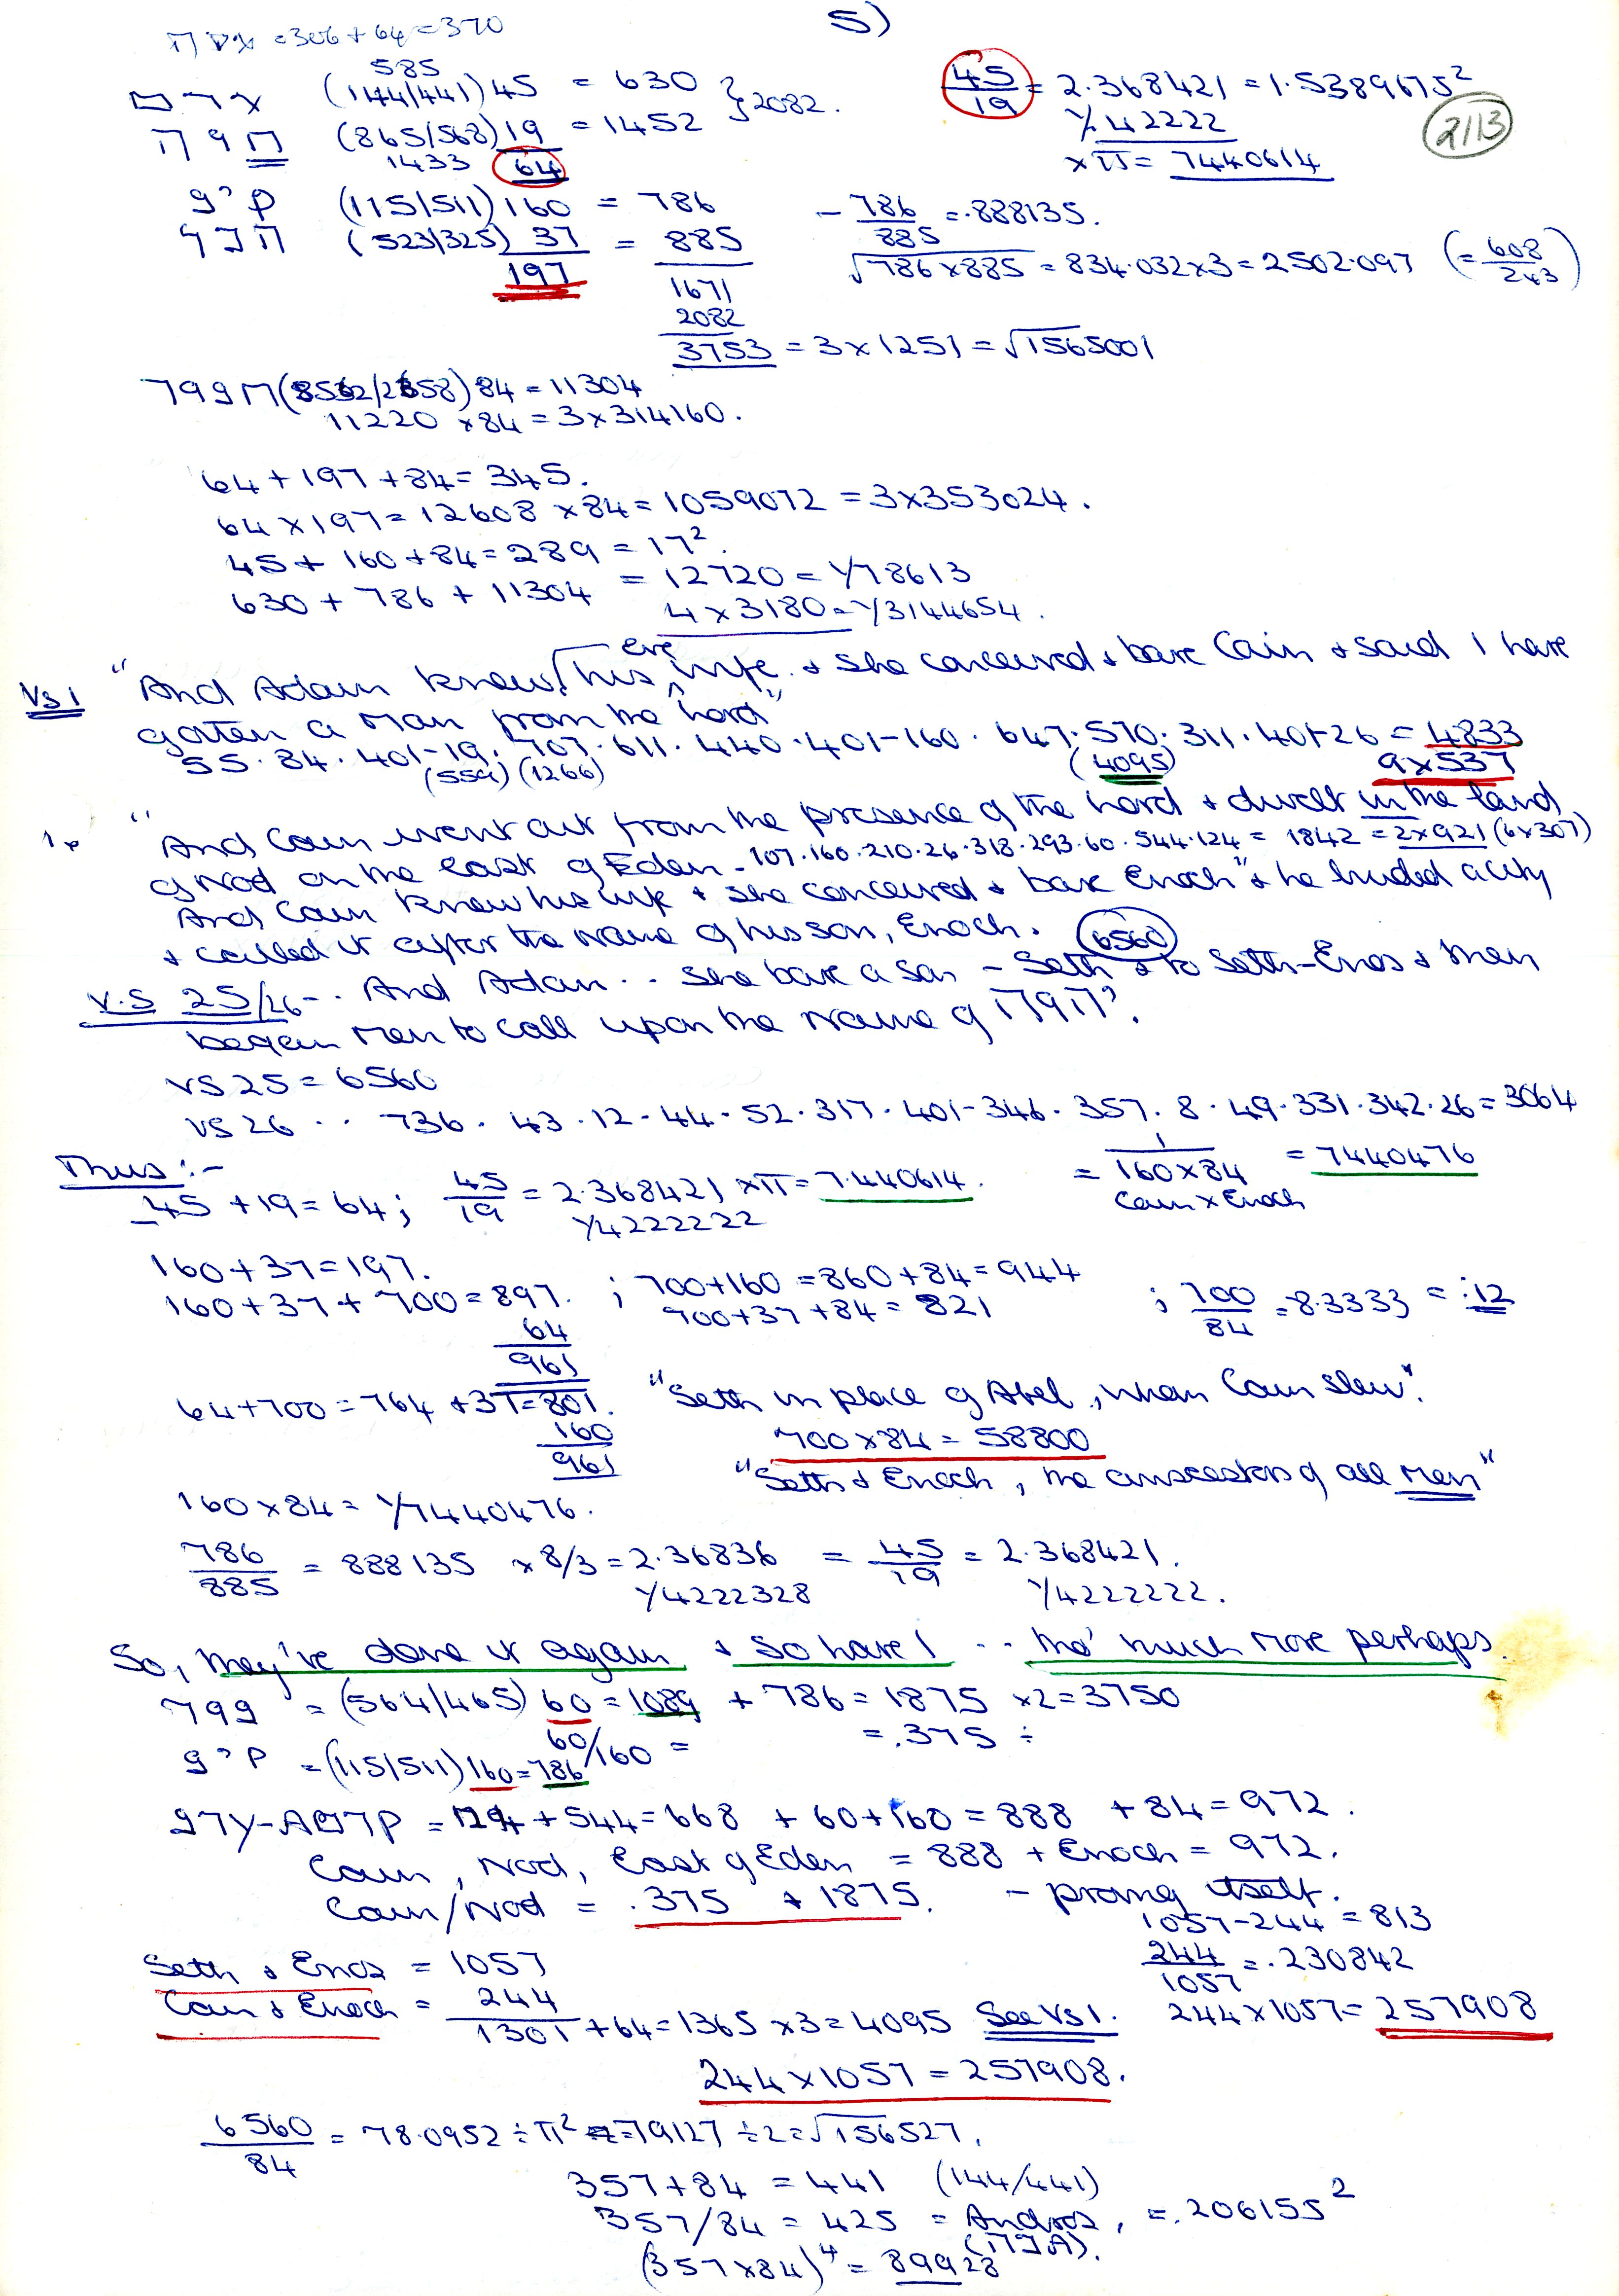 5)
= 306 + 64 = 370
585
(144/441) 45 = 630 } 2082.
(865/568) 19 = 1452
1433 64
45/19 = 2.368421 = 1.5389675²
1/42222
×π = 7440614
2113
(115/511) 160 = 786
(523/325) 37 = 885
197
1671
2082
3753 = 3×1251 = √1565001
- 786/885 = .888135.
√786×885 = 834.032×3 = 2502.097 (= 608/243)
84 = 11304
11220 ×84 = 3×314160.
64 + 197 + 84 = 345.
64 × 197 = 12608 ×84 = 1059072 = 3×353024.
45 + 160 + 84 = 289 = 17².
630 + 786 + 11304 = 12720 = 1/78613
4 × 3180 = 1/3144654.
Vs 1 "And Adam knew his eve wife & she conceived & bare Cain & said I have
gotten a man from the Lord"
55. 84. 401-19; 707. 611. 440. 401-160. 647. 510. 311. 401-26 = 4833
(559) (1266) (4095) 9×537
"And Cain went out from the presence of the Lord & dwelt in the land
of Nod on the East of Eden - 107.160.210.26.318.293.60.544.124 = 1842 = 2×921 (6×307)
And Cain knew his wife & she conceived & bare Enoch" & he builded a city
& called it after the name of his son, Enoch. 6560
V.S 25/26 -. And Adam .. she bare a son - Seth & to Seth-Enos & then
began men to call upon the name of יהוה?
VS 25 = 6560
VS 26 .. 736. 43. 12. 44. 52. 317. 401-346. 357. 8. 49. 331. 342. 26 = 3064
Thus:-
45 + 19 = 64; 45/19 = 2.368421 ×π = 7.440614. = 1/160×84 = 7440476
1/4222222 Cain × Enoch
160 + 37 = 197.
160 + 37 + 700 = 897. ; 700+160 = 860+84 = 944 ; 700/84 = 8.3333 = ÷12
64 700+37+84 = 821
961
64 + 700 = 764 + 37 = 801. "Seth in place of Abel, whom Cain slew".
160 700×84 = 58800
961 "Seth & Enoch, the ancestors of all men"
160 × 84 = 1/7440476.
786/885 = 888135 × 8/3 = 2.36836 = 45/19 = 2.368421.
1/4222328 1/4222222.
So, they've done it again & so have I .. tho' much more perhaps.
= (564/465) 60 = 1089 + 786 = 1875 ×2 = 3750
60/160 = = .375 ÷
= (115/511) 160 = 786
= 124 + 544 = 668 + 60 + 160 = 888 + 84 = 972.
Cain, Nod, East of Eden = 888 + Enoch = 972.
Cain/Nod = .375 & 1875. - proving itself.
1057 - 244 = 813
Seth & Enos = 1057
244/1057 = .230842
Cain & Enoch = 244
1301 + 64 = 1365 ×3 = 4095 See Vs 1. 244×1057 = 257908
244×1057 = 257908.
6560/84 = 78.0952 ÷ π² = 79127 ÷ 2 = √156527.
357 + 84 = 441 (144/441)
357/84 = 425 = Andros, = .206155²
(357×84)⁴ = 89928